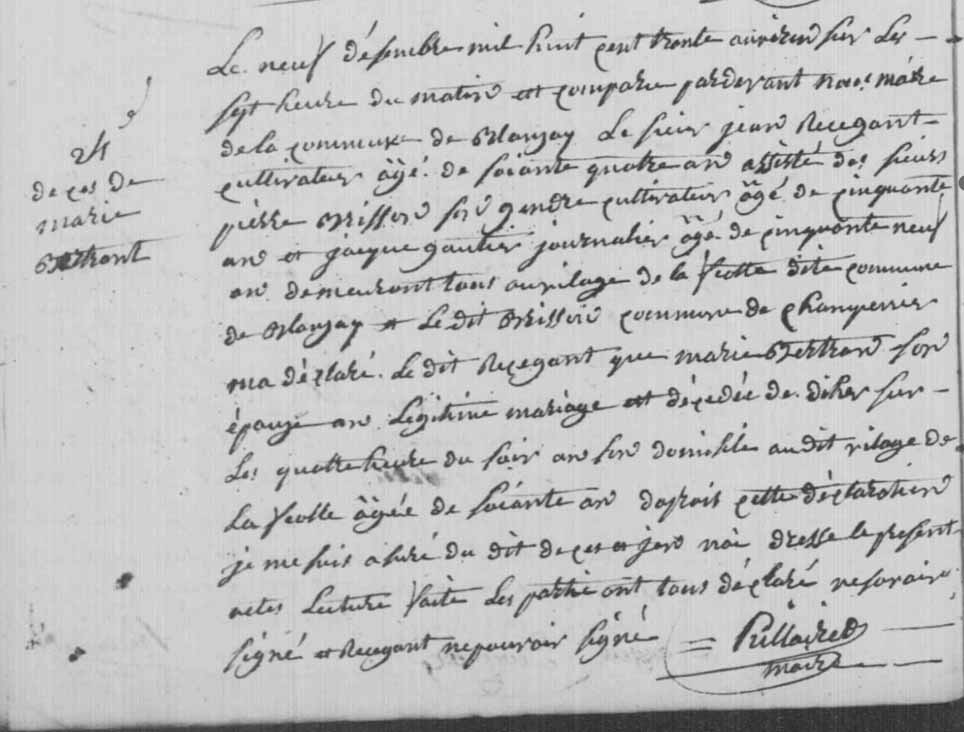 24
deces de
marie
Bertrant
Le neuf désembre mil huit cent trante anviron sur les
sept heure du matin et comparu pardevant nous maire
de la commune de Blanzay le sieur jean Recegant
cultivateur âgé de soiante quatre an assisté des sieurs
pierre Brisson son gendre cultivateur âgé de cinquante
an et jacque gautier journalier âgé de cinquante neuf
an demeurant tous au vilage de la dite commune
de Blanzay et le dit Brisson commune de
ma déclaré le dit Recegant que marie Bertrand son
épouze an légitime mariage et décedée de diher sur
les quatre heure du soir an son domisile au dit vilage de
la âgée de soiante an daprois cette déclaration
je me suis asuré du dit deces et jen nai dresse le present
actes lecture faite les partie ont tous déclaré ne savoir
signé et Recegant ne pouvoir signé
maire